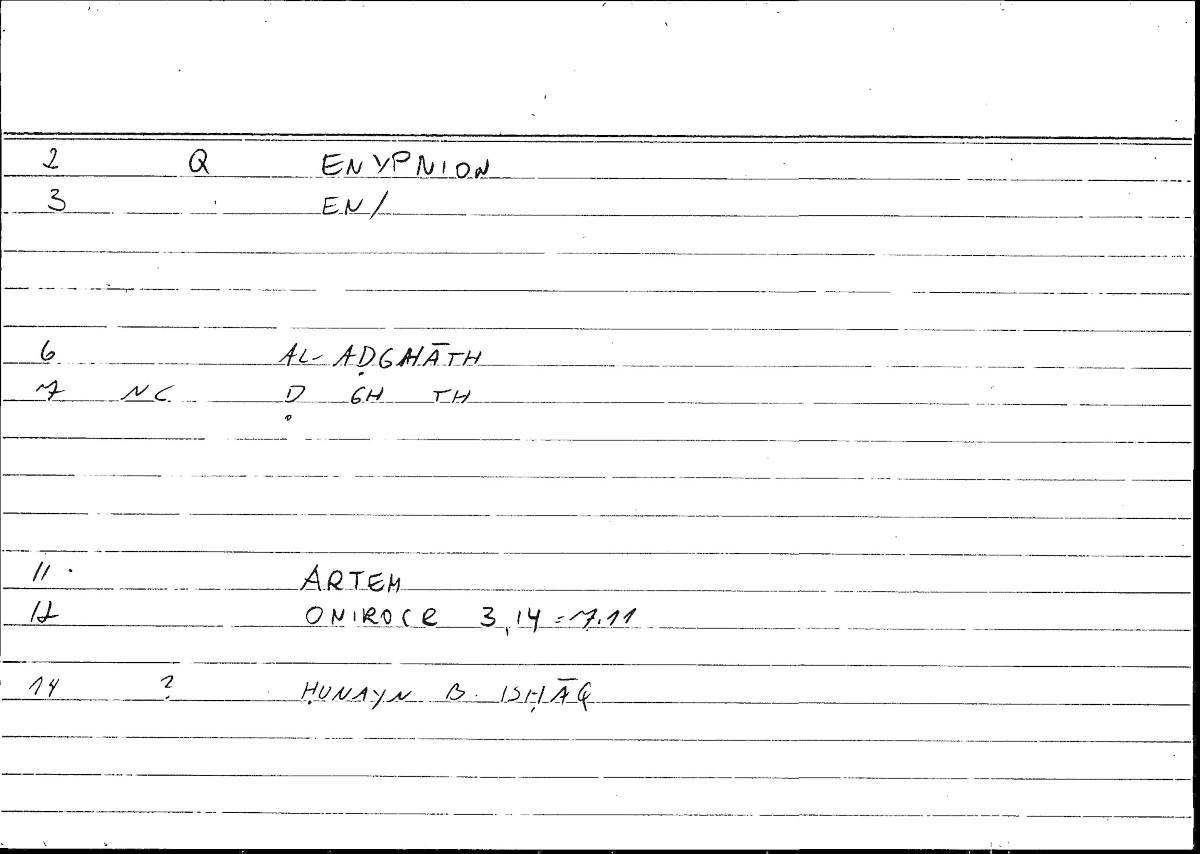 2 Q ENYPNION
3 EN/
6 AL-AḌGHĀTH
7 NC Ḍ GH TH
11 ARTEM
12 ONIROCR 3,14=7.11
14 ? ḤUNAYN B. ISḤĀQ